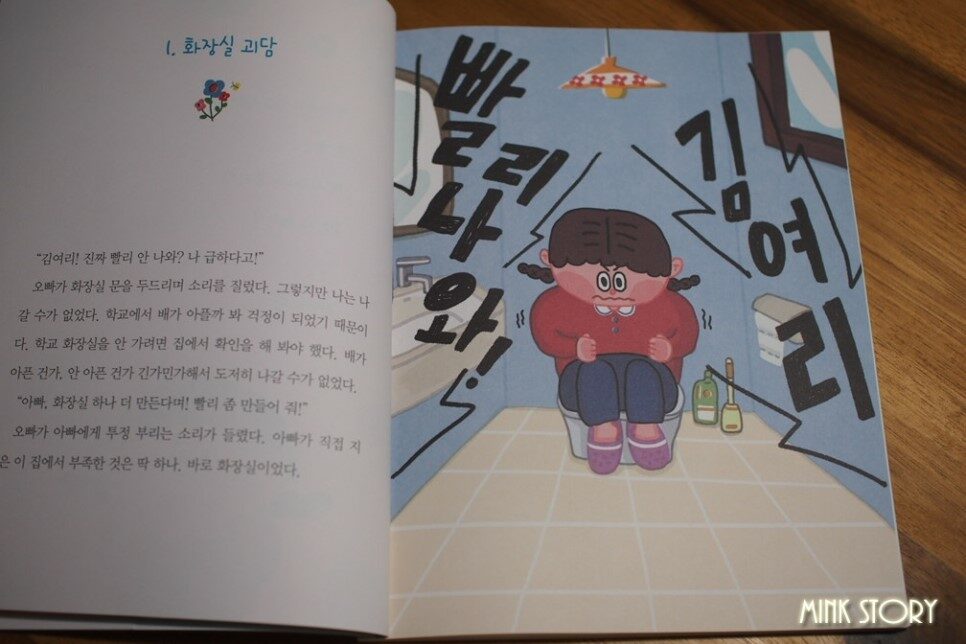 1. 화장실 괴담
"김여리! 진짜 빨리 안 나와? 나 급하다고!"
오빠가 화장실 문을 두드리며 소리를 질렀다. 그렇지만 나는 나
갈 수가 없었다. 학교에서 배가 아플까 봐 걱정이 되었기 때문이
다. 학교 화장실을 안 가려면 집에서 확인을 해 봐야 했다. 배가
아픈 건가, 안 아픈 건가 긴가민가해서 도저히 나갈 수가 없었다.
"아빠, 화장실 하나 더 만든다며! 빨리 좀 만들어 줘!"
오빠가 아빠에게 투정 부리는 소리가 들렸다. 아빠가 직접 지
은 이 집에서 부족한 것은 딱 하나. 바로 화장실이었다.
빨리
나와!
김여리
MINK STORY